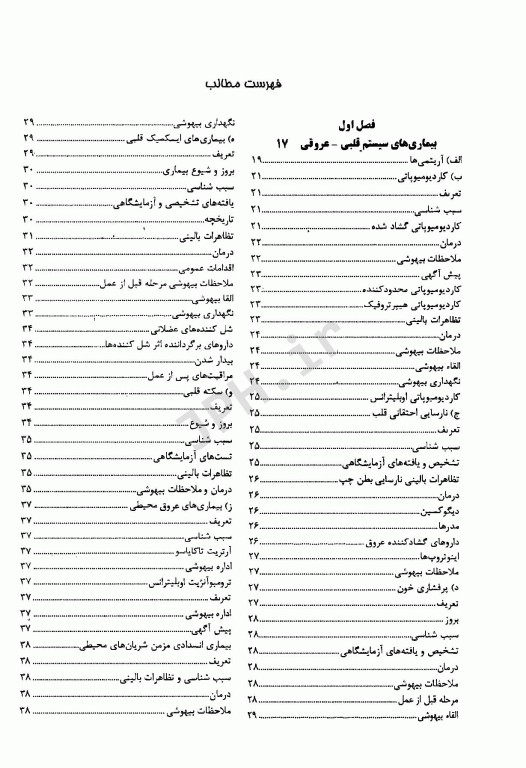 فهرست مطالب
فصل اول
بیماری‌های سیستم قلبی - عروقی ۱۷
الف) آریتمی‌ها ۱۹
ب) کاردیومیوپاتی ۲۱
تعریف ۲۱
سبب شناسی ۲۱
کاردیومیوپاتی گشاد شده ۲۱
درمان ۲۲
ملاحظات بیهوشی ۲۲
پیش آگهی ۲۳
کاردیومیوپاتی محدودکننده ۲۳
کاردیومیوپاتی هیپرتروفیک ۲۳
تظاهرات بالینی ۲۳
درمان ۲۴
ملاحظات بیهوشی ۲۴
القاء بیهوشی ۲۴
نگهداری بیهوشی ۲۴
کاردیومیوپاتی اوبلیترانس ۲۵
ج) نارسایی احتقانی قلب ۲۵
تعریف ۲۵
سبب شناسی ۲۵
تشخیص و یافته‌های آزمایشگاهی ۲۵
تظاهرات بالینی نارسایی بطن چپ ۲۶
درمان ۲۶
دیگوکسین ۲۶
مدرها ۲۶
داروهای گشادکننده عروق ۲۶
اینوتروپ‌ها ۲۷
ملاحظات بیهوشی ۲۷
د) پرفشاری خون ۲۷
تعریف ۲۷
بروز ۲۸
سبب شناسی ۲۸
تشخیص و یافته‌های آزمایشگاهی ۲۸
درمان ۲۸
ملاحظات بیهوشی ۲۸
مرحله قبل از عمل ۲۸
القاء بیهوشی ۲۹
نگهداری بیهوشی ۲۹
ه) بیماری‌های ایسکمیک قلبی ۲۹
تعریف ۲۹
بروز و شیوع بیماری ۳۰
سبب شناسی ۳۰
یافته‌های تشخیصی و آزمایشگاهی ۳۰
تاریخچه ۳۰
تظاهرات بالینی ۳۱
درمان ۳۲
اقدامات عمومی ۳۲
ملاحظات بیهوشی مرحله قبل از عمل ۳۲
القا بیهوشی ۳۳
نگهداری بیهوشی ۳۳
شل کننده‌های عضلانی ۳۴
داروهای برگرداننده اثر شل کننده‌ها ۳۴
بیدار شدن ۳۴
مراقبت‌های پس از عمل ۳۴
و) سکته قلبی ۳۴
تعریف ۳۴
بروز و شیوع ۳۴
سبب شناسی ۳۵
تست‌های آزمایشگاهی ۳۵
تظاهرات بالینی ۳۵
درمان و ملاحظات بیهوشی ۳۵
ز) بیماری‌های عروق محیطی ۳۷
تعریف ۳۷
سبب شناسی ۳۷
آرتریت تاکایاسو ۳۷
اداره بیهوشی ۳۷
ترومبوآنژیت اوبلیترانس ۳۷
تعریف ۳۷
اداره بیهوشی ۳۷
پیش آگهی ۳۷
بیماری انسدادی مزمن شریان‌های محیطی ۳۸
تعریف ۳۸
سبب شناسی و تظاهرات بالینی ۳۸
درمان ۳۸
ملاحظات بیهوشی ۳۸
JPH.ir